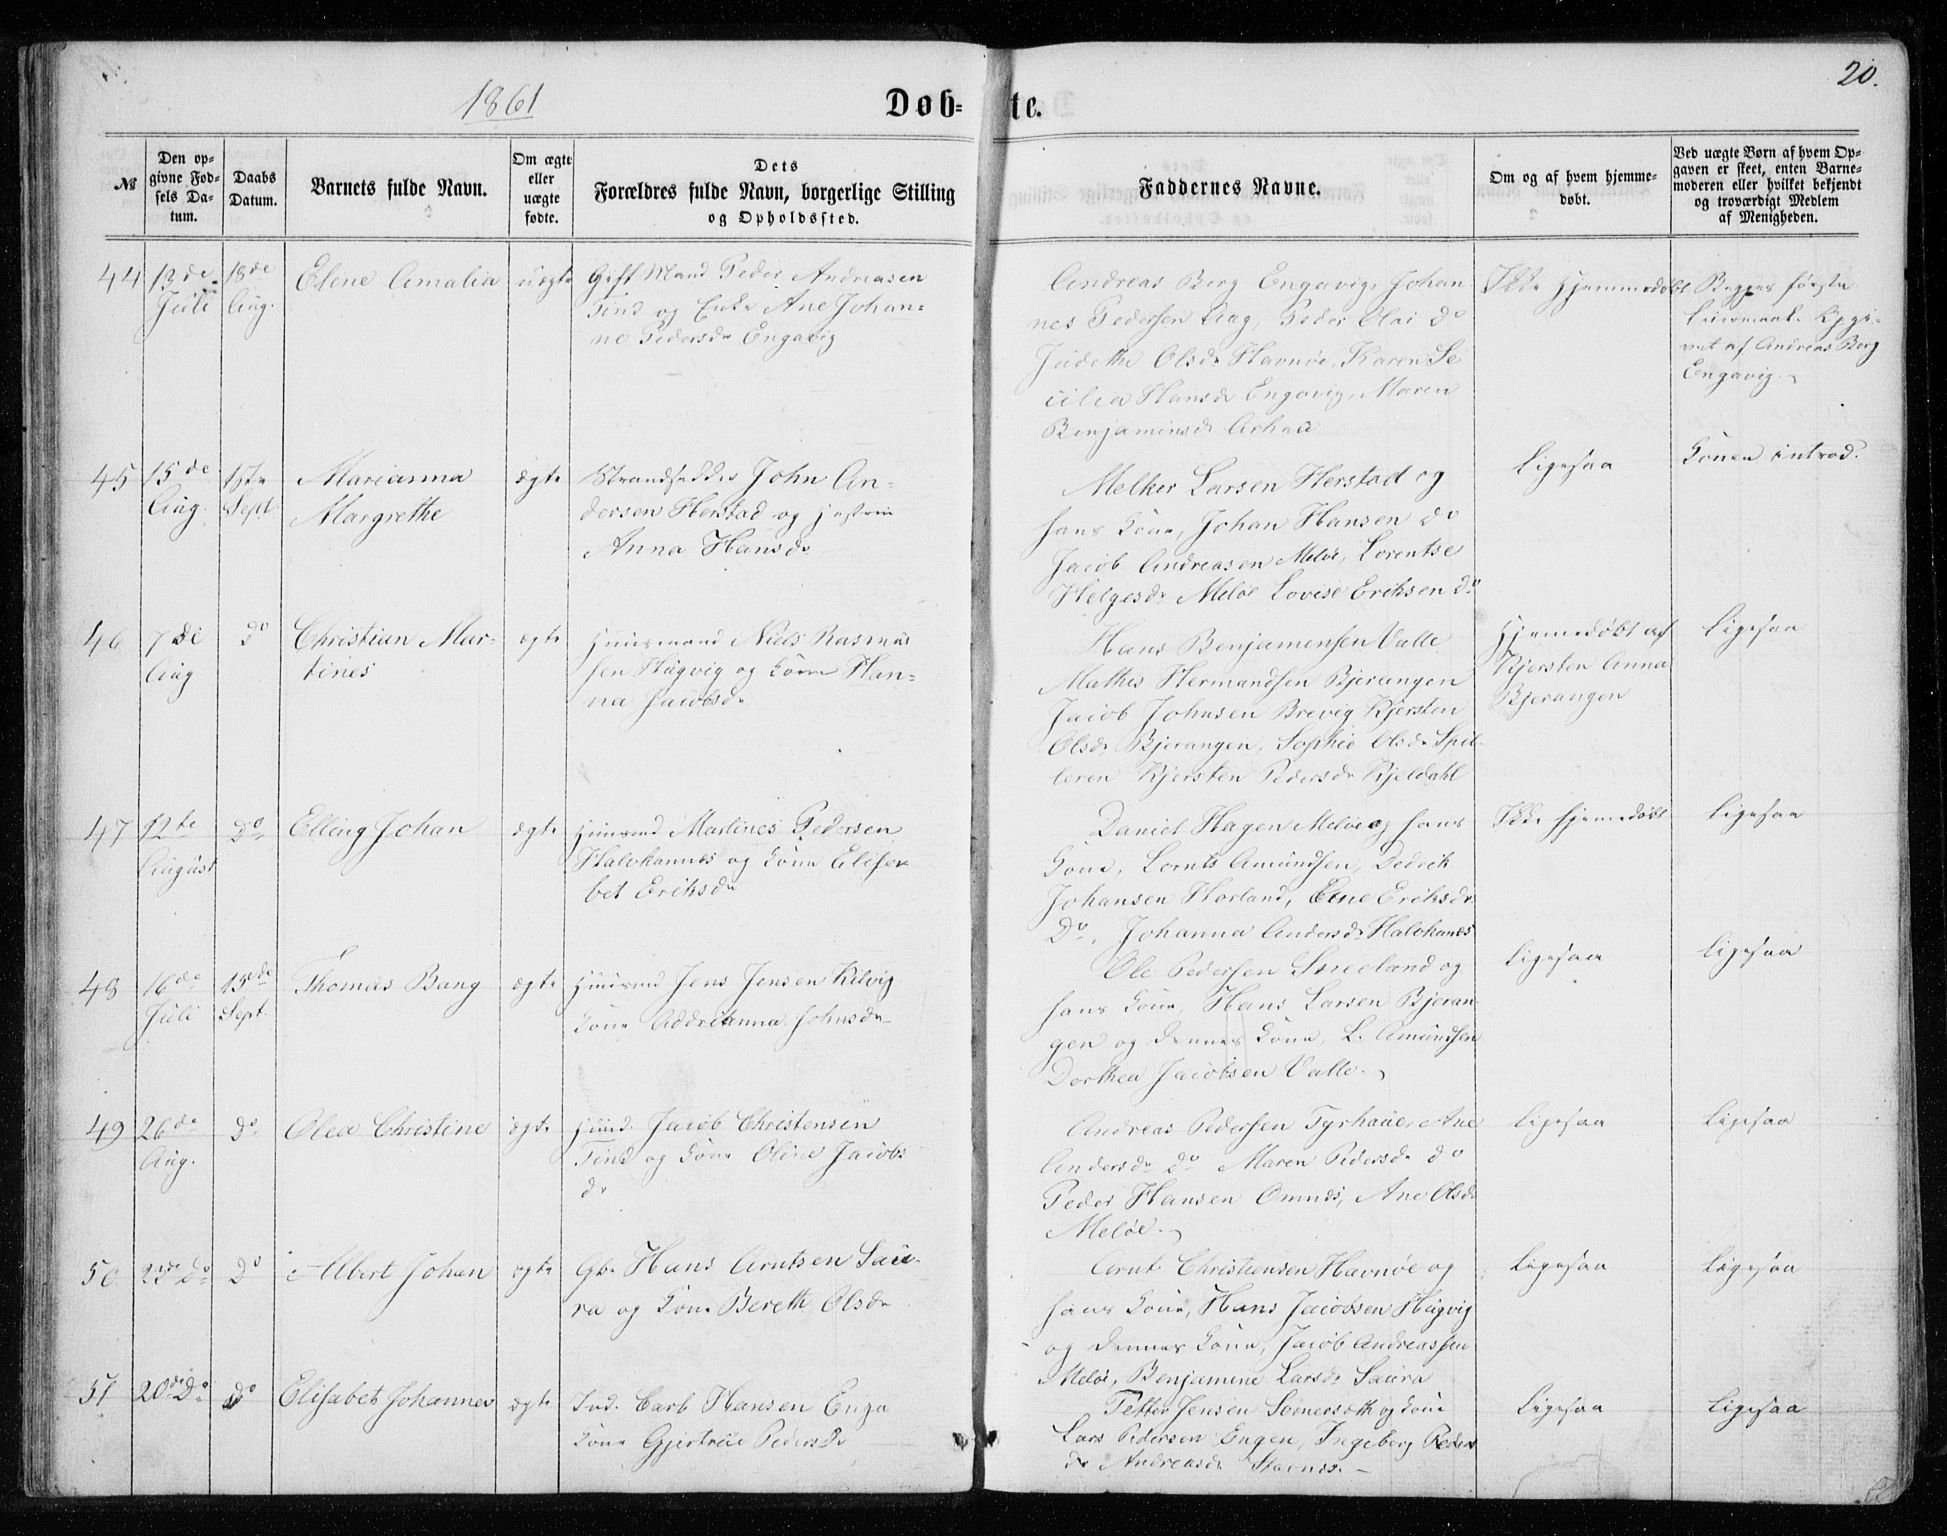 1861
Døb-te.
20.
№
Den op-
givne Fød-
sels Da-
tum.
Daabs
Datum.
Barnets fulde Navn.
Om ægte
eller
uægte
fødte.
Dets
Forældres fulde Navn, borgerlige Stilling
og Opholdssted.
Faddernes Navne.
Om og af hvem hjemme-
døbt.
Ved uægte Børn af hvem Op-
gaven er skeet, enten Barne-
moderen eller hvilket bekjendt
og troværdigt Medlem
af Menigheden.
44
13de
Juli
18de
Aug.
Elene Amalia
uægte
Gift Mand Peder Andreasen
Tind og Enke Ane Johan-
ne Pedersdr Engavig
Andreas Berg Engavig, Johan
nes Pedersen Aag, Peder Olai do
Judethe Olsdr Havnøe, Karen Se
cilia Hansdr Engavig, Maren
Benjaminsdr
Ikke hjemmedøbt
Begges første
Leiermaal. Opgi-
vet af Andreas Berg
Engavig.
45
15de
Aug.
1ste
Sept
Marianna
Margrethe
ægte
Strandsidder John An-
dersen Herstad og Hustru
Anna Hansdr
Melker Larsen Herstad og
hans Kone, Johan Hansen do
Jacob Andreasen Meløe, Lorentse
Helgesdr Meløe Lovise Eriksen do
Ligesaa
Konen introd.
46
7de
Aug
do
Christian Mar-
tines
ægte
Huusmand Niels Rasmus
sen Hugvig og Kone Han-
na Jacobsdr
Hans Benjamensen Valle
Mathis Hermandsen Bjerangen
Jacob Johnsen Brevig Kjersten
Olsdr Bjerangen, Sophie Olsdr Spil-
leren Kjersten Pedersdr Kjeldahl
Hjemmedøbt af
Kjersten Anna
Bjerangen
Ligesaa
47
12te
August
Do
Elling Johan
ægte
Huusmd Martines Pedersen
Halvhannes og Kone Elisa-
bet Eriksdr
Daniel Hagen Meløe og hans
Kone, Lornts Amundsen, Dedrik
Johansen Horland, Elne Eriksdr
Do, Johanna Andersdr Halvhanes
Ikke hjemmedøbt
Ligesaa
48
16de
Juli
15de
Sept.
Thomas Bang
ægte
Huusmd Jens Jensen Kilvig
Kone Addrianna Johnsdr
Ole Pedersen Sneeland og
hans Kone, Hans Larsen Bjeran-
gen og dennes Kone, L. Amundsen
Dorthea Jacobsen Valle.
Ligesaa
Ligesaa
49
26de
Aug.
Do
Olea Christine
ægte
Huusmd. Jacob Christensen
Tind og Kone Oline Jacobs
dr
Andreas Pedersen Tyrhaue, Ane
Andersdr do Maren Pedersdr do
Peder Hansen Omnes, Ane Olsdr
Meløe.
Ligesaa
Ligesaa
50
23de Do
Do
Albert Johan
ægte
Gbr Hans Arntsen Sau-
ra og Kone Bereth Olsdr
Arnt Christiansen Havnøe og
hans Kone, Hans Jacobsen Hugvig
og dennes Kone, Jacob Andreassen
Meløe, Benjamine Larsdr Saura
Ligesaa
Ligesaa
51
20de Do
Do
Elisabet Johannes
ægte
Ind. Carb Hansen Enga
Kone Gjertrue Pedersdr
Petter Jensen Sværesæth og Kone
Lars Pedersen Engen, Ingeborg Peders
dr Andreasdr Stavnes.
Ligesaa
Ligesaa